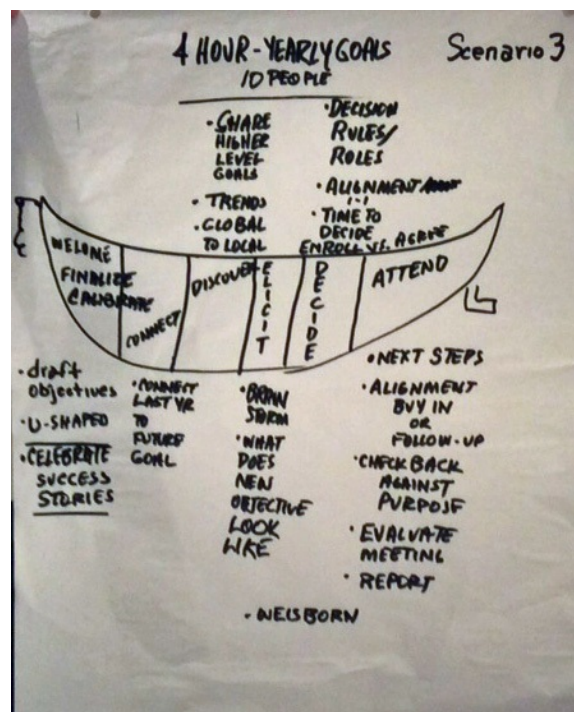 4 HOUR-YEARLY GOALS
10 PEOPLE
Scenario 3
• SHARE
HIGHER
LEVEL
GOALS
• TRENDS
• GLOBAL
TO LOCAL
• DECISION
RULES/
ROLES
• ALIGNMENT
1-1
• TIME TO
DECIDE
ENROLL VS. AGREE
WELCOME
FINALIZE
CALIBRATE
CONNECT
DISCOVER
ELICIT
DECIDE
ATTEND
• draft
objectives
• U-SHAPED
• CELEBRATE
SUCCESS
STORIES
• CONNECT
LAST YR
TO
FUTURE
GOAL
• BRAIN
STORM
• WHAT
DOES
NEW
OBJECTIVE
LOOK
LIKE
• NEXT STEPS
• ALIGNMENT
BUY IN
OR
FOLLOW-UP
• CHECK BACK
AGAINST
PURPOSE
• EVALUATE
MEETING
• REPORT
• WEISBORN